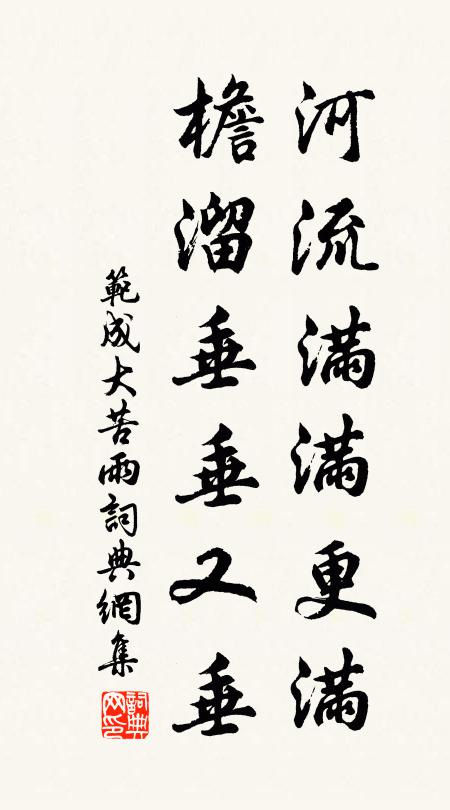 河流滿滿更滿
檐溜垂垂又垂
範成大苦雨詞典網集
詞典网印